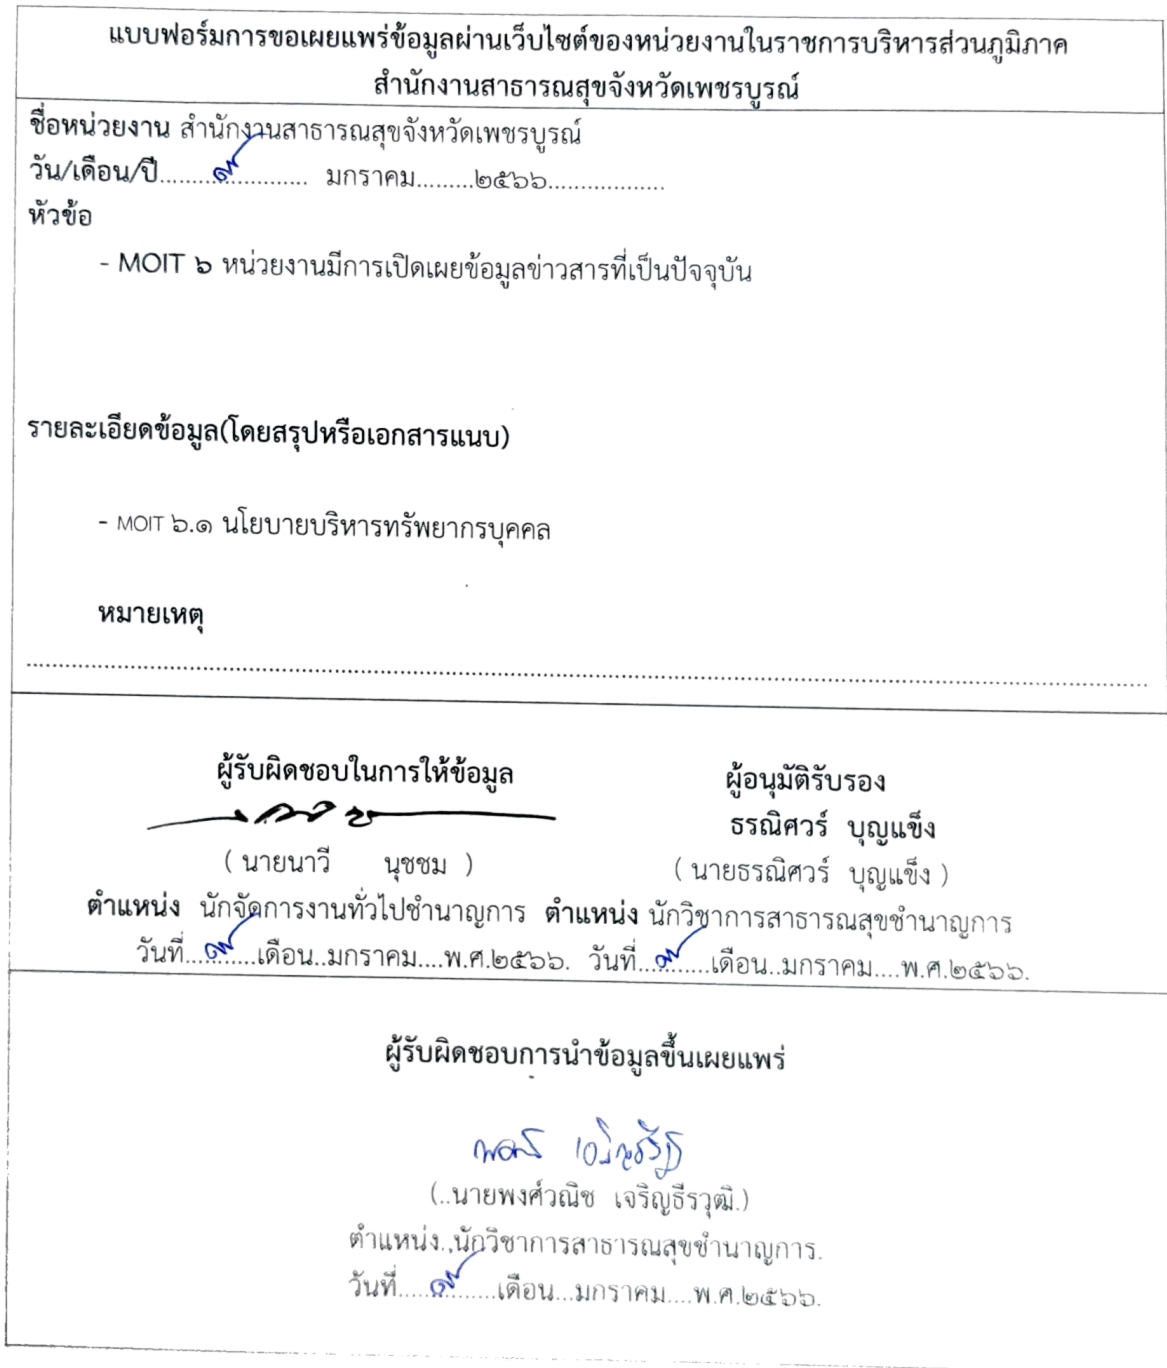 แบบฟอร์มการขอเผยแพร่ข้อมูลผ่านเว็บไซต์ของหน่วยงานในราชการบริหารส่วนภูมิภาค
สำนักงานสาธารณสุขจังหวัดเพชรบูรณ์
ชื่อหน่วยงาน สำนักงานสาธารณสุขจังหวัดเพชรบูรณ์
วัน/เดือน/ปี.........๙............. มกราคม.........๒๕๖๖..................
หัวข้อ
- MOIT ๖ หน่วยงานมีการเปิดเผยข้อมูลข่าวสารที่เป็นปัจจุบัน
รายละเอียดข้อมูล(โดยสรุปหรือเอกสารแนบ)
- MOIT ๖.๑ นโยบายบริหารทรัพยากรบุคคล
หมายเหตุ
ผู้รับผิดชอบในการให้ข้อมูล ผู้อนุมัติรับรอง
ธรณิศวร์ บุญแข็ง
( นายนาวี นุชชม ) ( นายธรณิศวร์ บุญแข็ง )
ตำแหน่ง นักจัดการงานทั่วไปชำนาญการ ตำแหน่ง นักวิชาการสาธารณสุขชำนาญการ
วันที่...๙.......เดือน..มกราคม....พ.ศ.๒๕๖๖. วันที่...๙.......เดือน..มกราคม....พ.ศ.๒๕๖๖.
ผู้รับผิดชอบการนำข้อมูลขึ้นเผยแพร่
(..นายพงศ์วณิช เจริญธีรวุฒิ.)
ตำแหน่ง..นักวิชาการสาธารณสุขชำนาญการ.
วันที่.....๙........เดือน...มกราคม....พ.ศ.๒๕๖๖.